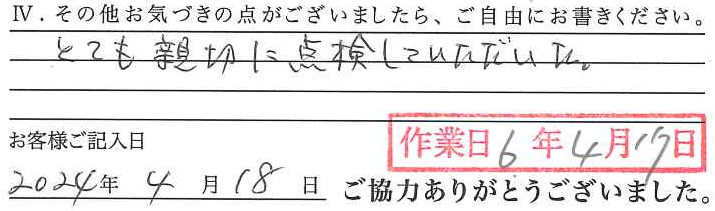 Ⅳ．その他お気づきの点がございましたら、ご自由にお書きください。
とても親切に点検していただいた。
お客様ご記入日
作業日6年4月17日
2024年4月18日
ご協力ありがとうございました。